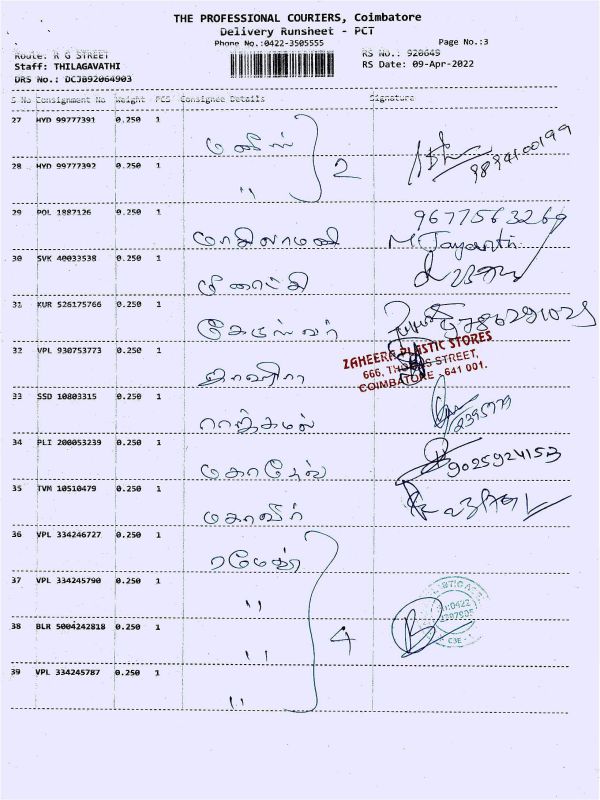 THE PROFESSIONAL COURIERS, Coimbatore
Delivery Runsheet - PCT
Phone No.:0422-3505555
Page No.:3
Route: R G STREET
RS No.: 920649
Staff: THILAGAVATHI
RS Date: 09-Apr-2022
DRS No.: DCJB92064903
S No Consignment No Weight PCS Consignee Details Signature
27 HYD 99777391 0.250 1
2
9894100199
28 HYD 99777392 0.250 1
"
9677563269
29 POL 1887126 0.250 1
M Jayanthi
30 SVK 40033538 0.250 1
மீனாட்சி
31 KUR 526175766 0.250 1
9786291029
ZAHEERA PLASTIC STORES
32 VPL 930753773 0.250 1
666, STREET,
COIMBATORE - 641 001.
ஜாஹிரா
33 SSD 10803315 0.250 1
ராஜ்கமல்
34 PLI 200053239 0.250 1
9025924153
35 TVM 10510479 0.250 1
மகாவீர்
36 VPL 334246727 0.250 1
ரமேஷ்
37 VPL 334245790 0.250 1
"
38 BLR 5004242818 0.250 1
4
"
39 VPL 334245787 0.250 1
"